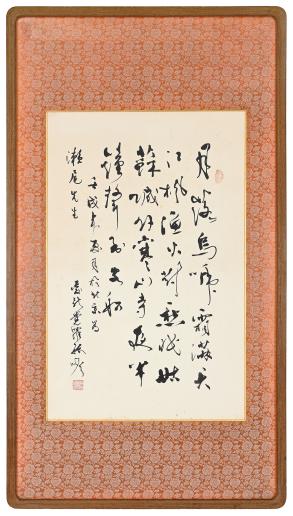 月落烏啼霜滿天
江楓漁火對愁眠姑
蘇城外寒山寺夜半
鐘聲到客船
壬戌夏月於北京為
瀨尾先生
愛新覺羅